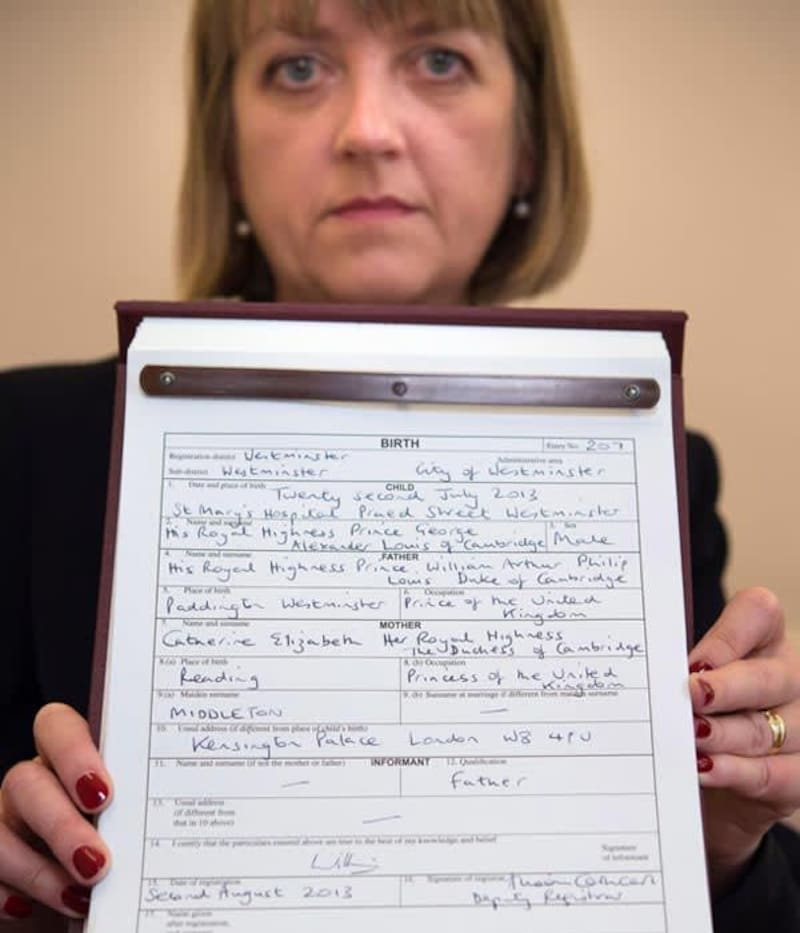 BIRTH Entry No. 207
Registration district Westminster Administrative area
Sub-district Westminster City of Westminster
1. Date and place of birth CHILD
Twenty second July 2013
St Mary's Hospital Praed Street Westminster
2. Name and surname 3. Sex
His Royal Highness Prince George
Alexander Louis of Cambridge Male
4. Name and surname FATHER
His Royal Highness Prince William Arthur Philip
Louis Duke of Cambridge
5. Place of birth 6. Occupation
Paddington Westminster Prince of the United
Kingdom
7. Name and surname MOTHER
Catherine Elizabeth Her Royal Highness
The Duchess of Cambridge
8.(a) Place of birth 8. (b) Occupation
Reading Princess of the United
Kingdom
9.(a) Maiden surname 9. (b) Surname at marriage if different from maiden surname
MIDDLETON —
10. Usual address (if different from place of child's birth)
Kensington Palace London W8 4PU
11. Name and surname (if not the mother or father) INFORMANT 12. Qualification
— Father
13. Usual address
(if different from
that in 10 above) —
14. I certify that the particulars entered above are true to the best of my knowledge and belief
Signature
of informant
15. Date of registration 16. Signature of registrar
Second August 2013 Deputy Registrar
17. Name given
after registration,